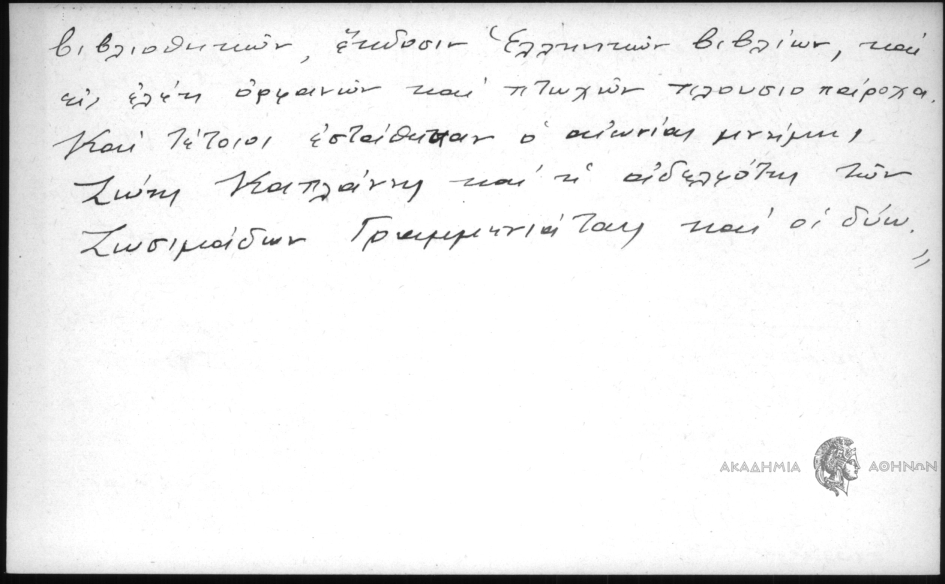 βιβλιοθηκῶν, ἔκδοσιν Ἑλληνικῶν βιβλίων, καί
εἰς ἐλέη ὀρφανῶν καί πτωχῶν πλουσιοπάροχα.
Καί τέτοιοι ἐστάθησαν ὁ αἰωνίας μνήμης
Ζώης Καπλάνης καί ἡ ἀδελφότης τῶν
Ζωσιμάδων Γραμμενιάταις καί οἱ δύω.
ΑΚΑΔΗΜΙΑ ΑΘΗΝΩΝ